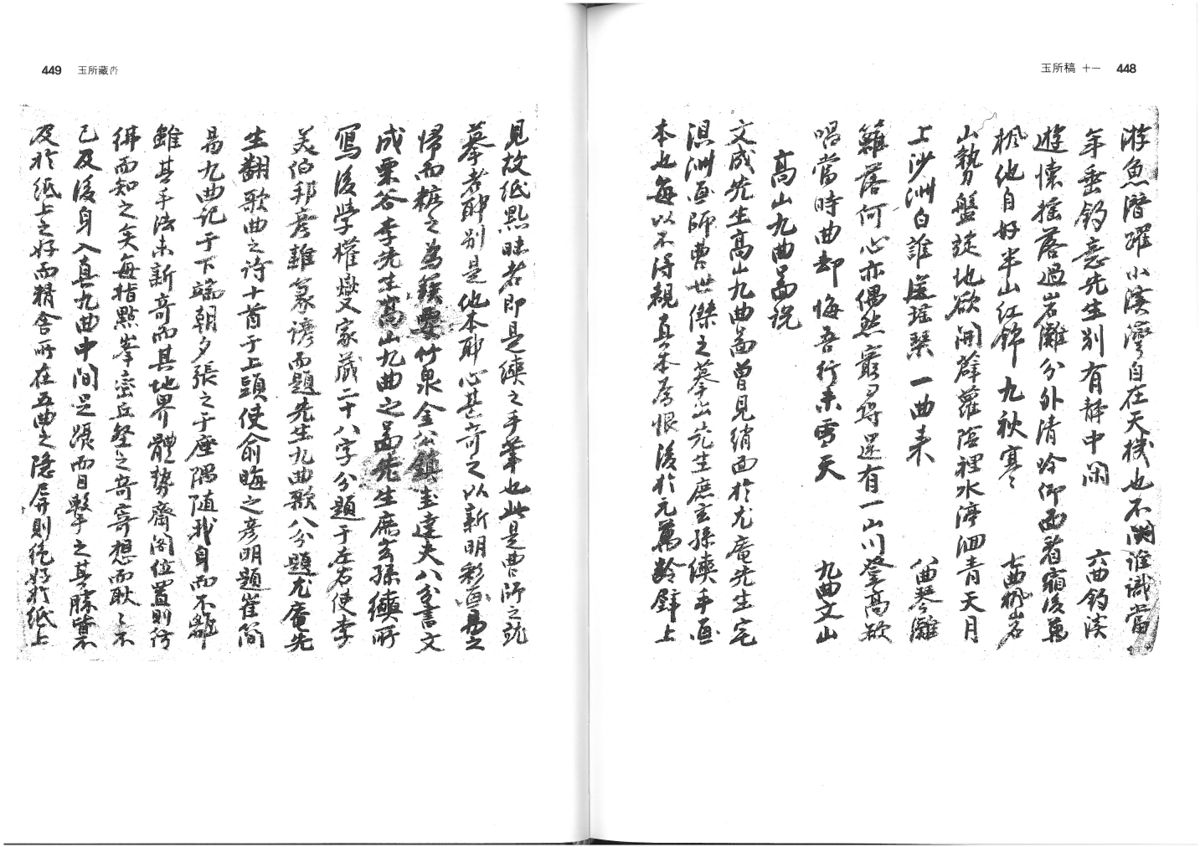 玉所稿 十一 448
游魚潛躍小溪灣自在天機也不關誰識當
年垂釣意先生別有靜中閑 六曲釣溪
遊懷搖落過岩灘分外清冷仰面看宿後萬
楓他自好半山紅錦九秋寒 七曲楓岩
山勢盤 地欲開薜蘿陰裡水 洄青天月
上沙洲白誰 瑤琴一曲來 八曲琴灘
籬落何心亦偶然窮尋還有一山川登高欲
唱當時曲却悔吾行未雪天 九曲文山
高山九曲圖說
文成先生高山九曲圖曾見綃面於尤庵先生宅
淇洲画師曹世傑之摹出先生庶玄孫續手画
本也每以不得親真本為恨後於元萬齡壁上
449 玉所藏
見故紙點昧者即是續之手筆也此是曹師之
摹者耶別是他本耶心甚奇之以新明彩画易之
歸而粧之為 竹泉金公鎮圭達夫八分書文
成栗谷李先生高山九曲之圖先生庶玄孫續所
寫後學權燮家藏二十八字分題于左右使李
美伯邦彦雜篆 而題先生九曲歌八分題尤庵先
生翻歌曲之詩十首于上頭使俞晦之彦明題崔簡
易九曲記于下端朝夕張之于座隅隨我身而不離
雖其手法未新奇而其地界體勢齋閣位置則行
 而知之矣每指點峯巒丘壑之奇寄想而耿々不
已及後身入真九曲中間足躡而目擊之其勝 不
及於紙上之好而精舍所在五曲之隱屏則絶好於紙上